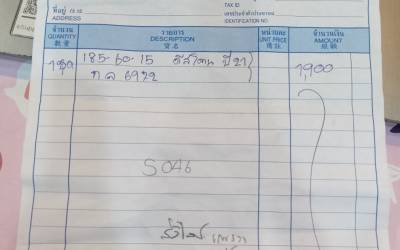 ที่อยู่ 住址
ADDRESS
TAX ID
เลขประจำตัวประชาชน
IDENTIFICATION NO.
จำนวน
QUANTITY
數量
รายการ
DESCRIPTION
貨名
หน่วยละ
UNIT PRICE
價註
จำนวนเงิน
AMOUNT
銀額
1ชุด 185-60-15 ปี 21 1,900
ก ล 6922
S046